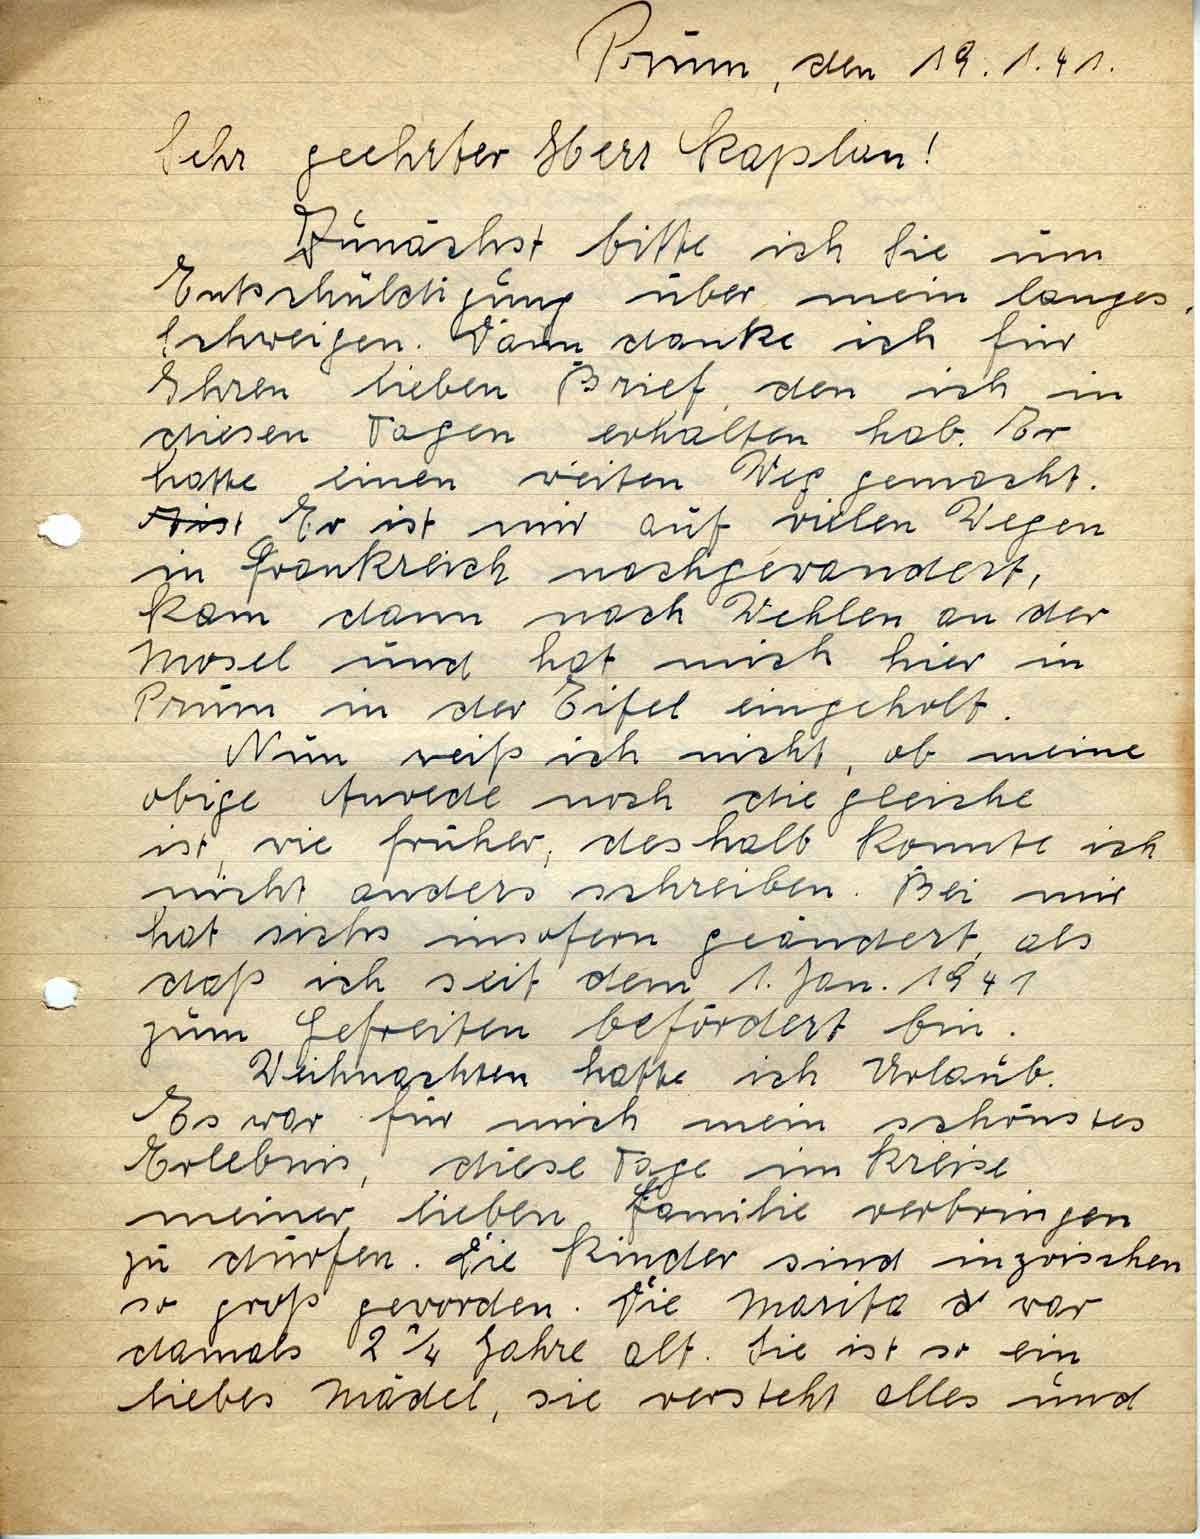 Prüm, den 19.1.41.
Sehr geehrter Herr Kaplan!
Zunächst bitte ich Sie um
Entschuldigung über mein langes
Schweigen. Dann danke ich für
Ihren lieben Brief, den ich in
diesen Tagen erhalten hab. Er
hatte einen weiten Weg gemacht.
Er ist mir auf vielen Wegen
in Frankreich nachgewandert,
kam dann nach Wehlen an der
Mosel und hat mich hier in
Prüm in der Eifel eingeholt.
Nun weiß ich nicht, ob meine
obige Anrede noch die gleiche
ist, wie früher, deshalb konnte ich
nicht anders schreiben. Bei mir
hat sichs insofern geändert, als
daß ich seit dem 1. Jan. 1941
zum Gefreiten befördert bin.
Weihnachten hatte ich Urlaub.
Es war für mich mein schönstes
Erlebnis, diese Tage im Kreise
meiner lieben Familie verbringen
zu dürfen. Die Kinder sind inzwischen
so groß geworden. Die Marita war
damals 2 1/4 Jahre alt. Sie ist so ein
liebes Mädel, sie versteht alles und